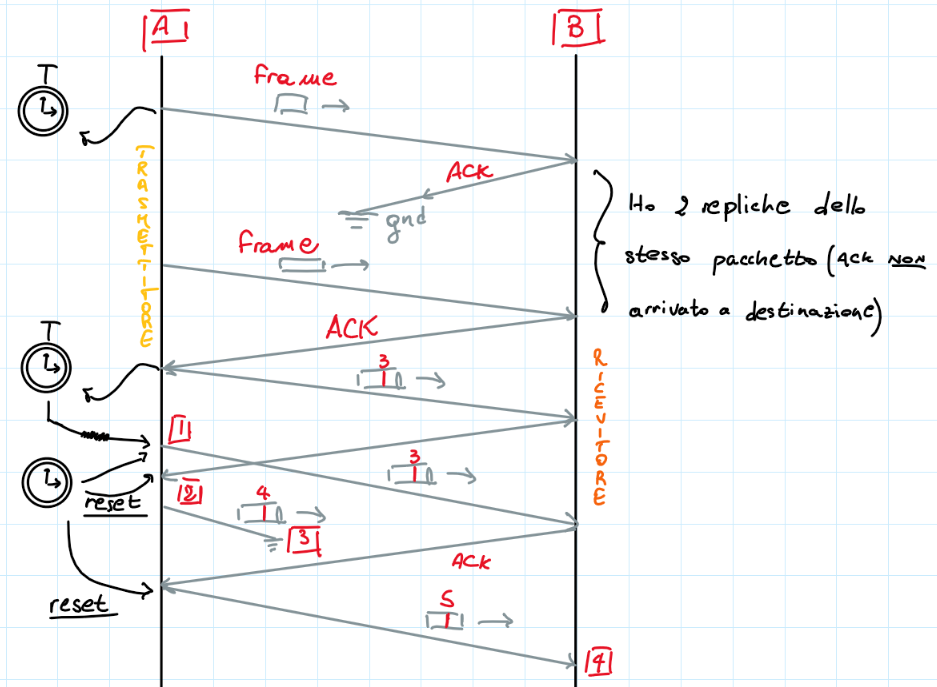 A
B
T
Frame
TRASMETTITORE
ACK
gnd
Ho 2 repliche dello
stesso pacchetto (ACK NON
arrivato a destinazione)
Frame
ACK
T
3
RICEVITORE
1
3
2
4
reset
3
ACK
reset
5
4